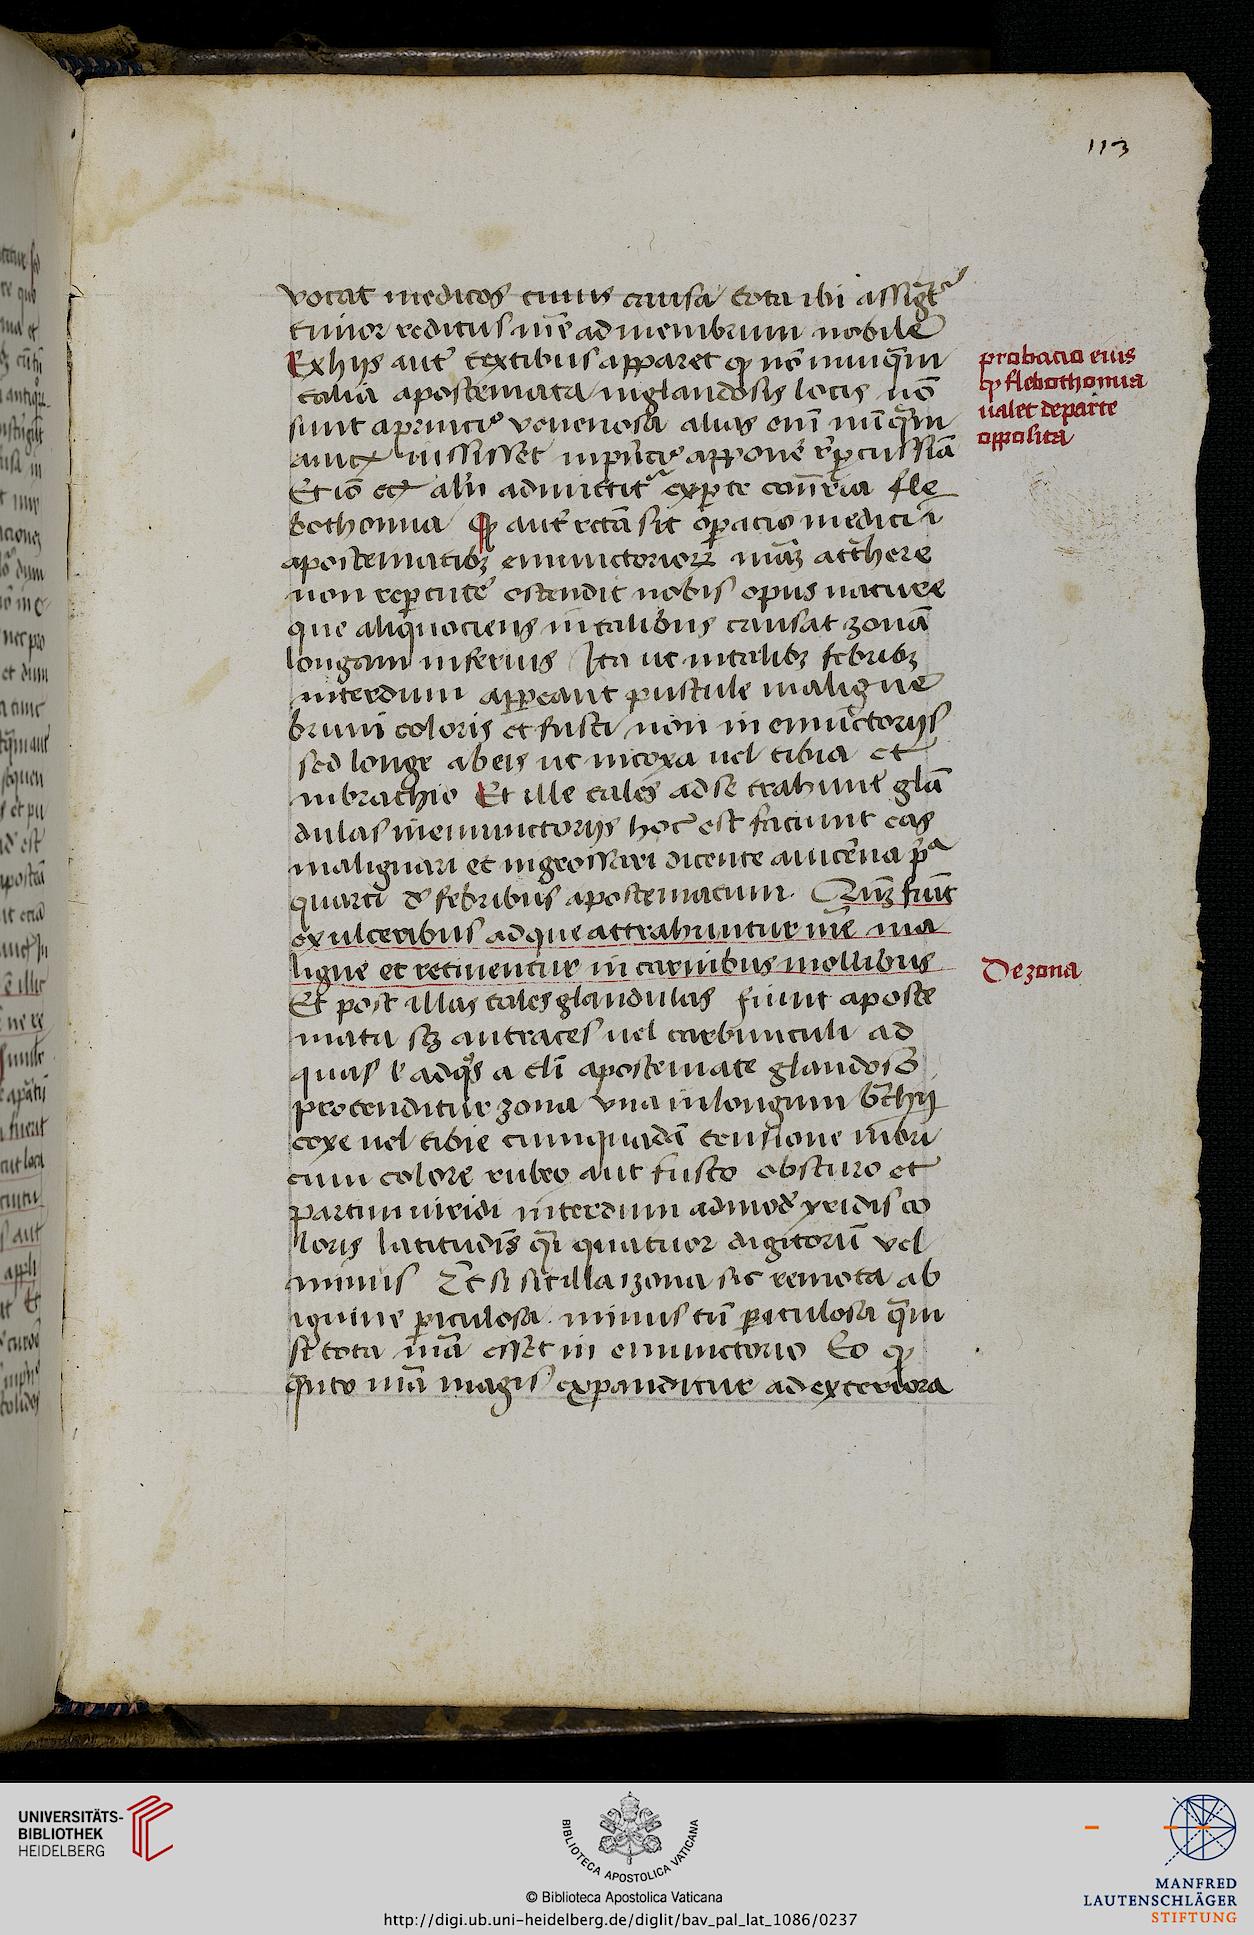 113
vocat medicos cuius causa tota ibi assigt᷑
timor reditus mē ad membrum nobile
Ex hijs aut̄ textibus apparet qꝫ nō nunq̄m
talia apostemata in glandosis locis nō
sunt a princ̄ venenosa alias enī nūq̄m
auicꝫ iussisset in prīc̄ appon̄e rep̄cussiā
Et iō ecꝫ alij admittit᷑ ex p̄te cont̄ria fle
bothomia Qꝫ aut̄ rectā sit op̄atio medici ī
apostematibꝫ emunctorioꝝ mām att̄here
non rep̄cut̄e ostendit nobis opus nature
que aliquociens in talibus causat zonā
longam inferius Ita ut in talibꝫ febribꝫ
interdum appeant pustule maligne
bruni coloris et fusci non in emūctorijs
sed longe ab eis ut in coxa uel tibia et
in brachio Et ille tales ad se trahunt glā
dulas in emunctorijs hoc est faciunt eas
malignari et ingrossari dicente auicēna p̄ᵃ
quarti d̄ febribus apostematum. Qn̄ꝫ fiūt
ex ulceribus ad que attrahuntur mē̄ ma
ligne et retinentur in carnibus mollibus
Et post illas tales glandulas fiunt aposte
mata sꝫ antraces uel carbunculi ad
quas l̄ ad q̊s a tli apostemate glandoso
protenditur zona vna in longum b̄chij
coxe uel tibie cum quadā tensione mēbri
cum colore rubeo aut fusco obscuro et
partim viridi interdum ad mod̄ yridis co
loris latitudīs q̄i quatuor digitorū vel
minus Et si sit illa zona sic remota ab
iguine p̄iculosa. minus tn̄ p̄iculosa q̄m
si tota mā esset in emunctorio Eo qꝫ
q̄nto mā magis expanditur ad exteriora
probacio eius
qꝫ flebothomia
ualet de parte
opposita
De zona
UNIVERSITÄTS-
BIBLIOTHEK
HEIDELBERG
BIBLIOTECA APOSTOLICA VATICANA
© Biblioteca Apostolica Vaticana
http://digi.ub.uni-heidelberg.de/diglit/bav_pal_lat_1086/0237
MANFRED
LAUTENSCHLÄGER
STIFTUNG